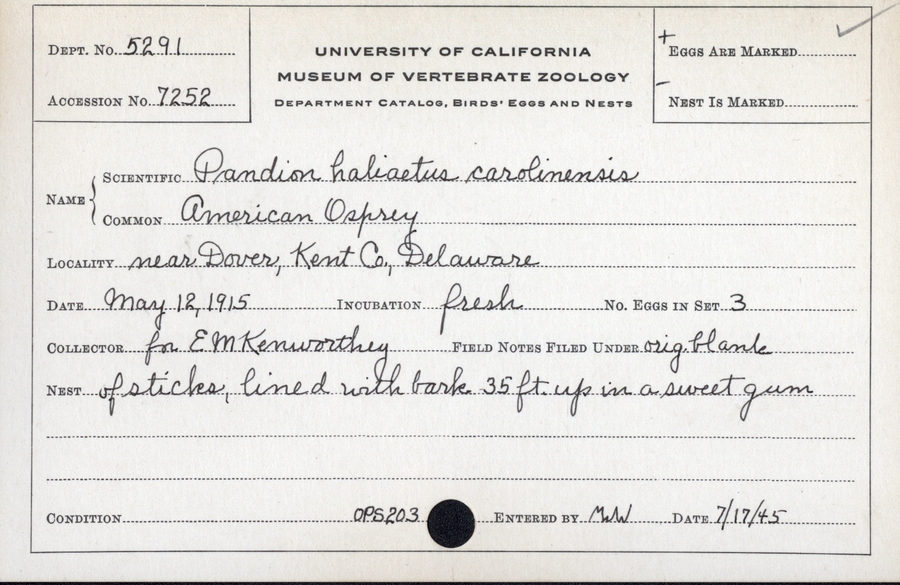 DEPT. No. 5291
ACCESSION No. 7252
UNIVERSITY OF CALIFORNIA
MUSEUM OF VERTEBRATE ZOOLOGY
DEPARTMENT CATALOG, BIRDS' EGGS AND NESTS
+ EGGS ARE MARKED
- NEST IS MARKED
NAME
SCIENTIFIC Pandion haliaetus carolinensis
COMMON American Osprey
LOCALITY near Dover, Kent Co., Delaware
DATE May 12, 1915 INCUBATION fresh No. EGGS IN SET 3
COLLECTOR for E M Kenworthey FIELD NOTES FILED UNDER orig. blank
NEST of sticks, lined with bark 35 ft. up in a sweet gum
CONDITION OPS203 ENTERED BY DATE 7/17/45